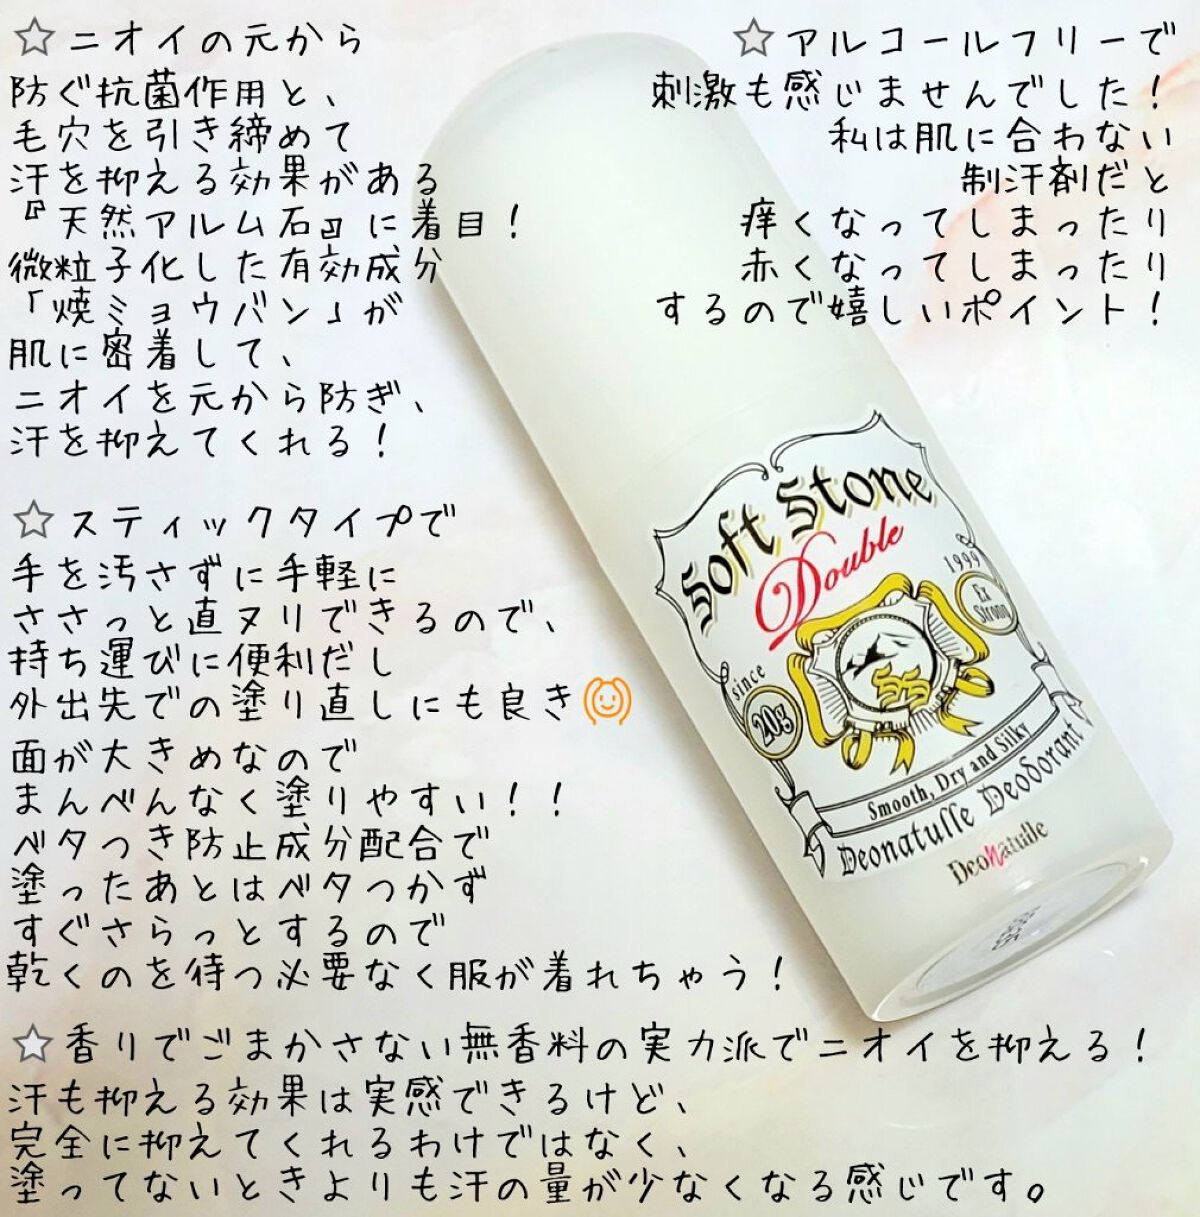 ☆ニオイの元から
防ぐ抗菌作用と、
毛穴を引き締めて
汗を抑える効果がある
『天然アルム石』に着目！
微粒子化した有効成分
「焼ミョウバン」が
肌に密着して、
ニオイを元から防ぎ、
汗を抑えてくれる！
☆アルコールフリーで
刺激も感じませんでした！
私は肌に合わない
制汗剤だと
痒くなってしまったり
赤くなってしまったり
するので嬉しいポイント！
☆スティックタイプで
手を汚さずに手軽に
ささっと直ヌリできるので、
持ち運びに便利だし
外出先での塗り直しにも良き
面が大きめなので
まんべんなく塗りやすい！！
ベタつき防止成分配合で
塗ったあとはベタつかず
すぐさらっとするので
乾くのを待つ必要なく服が着れちゃう！
Soft Stone
Double
1999
Ex
Strong
since
20g
SS
Smooth, Dry and Silky
Deonatulle Deodorant
Deonatulle
☆香りでごまかさない無香料の実力派でニオイを抑える！
汗も抑える効果は実感できるけど、
完全に抑えてくれるわけではなく、
塗ってないときよりも汗の量が少なくなる感じです。